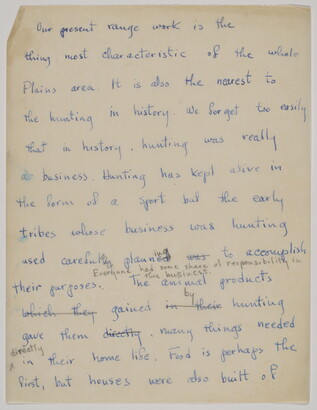 Our present range work is the
thing most characteristic of the whole
Plains area. It is also the nearest to
the hunting in history. We forget too easily
that in history, hunting was really
a business. Hunting has kept alive in
the form of a sport but the early
tribes whose business was hunting
used carefully planning was to accomplish
Everyone had some share of responsibility in
the business.
their purposes. The animal products
which they gained in their by hunting
gave them directly. many things needed
directly
in their home life. Food is perhaps the
first, but houses were also built of